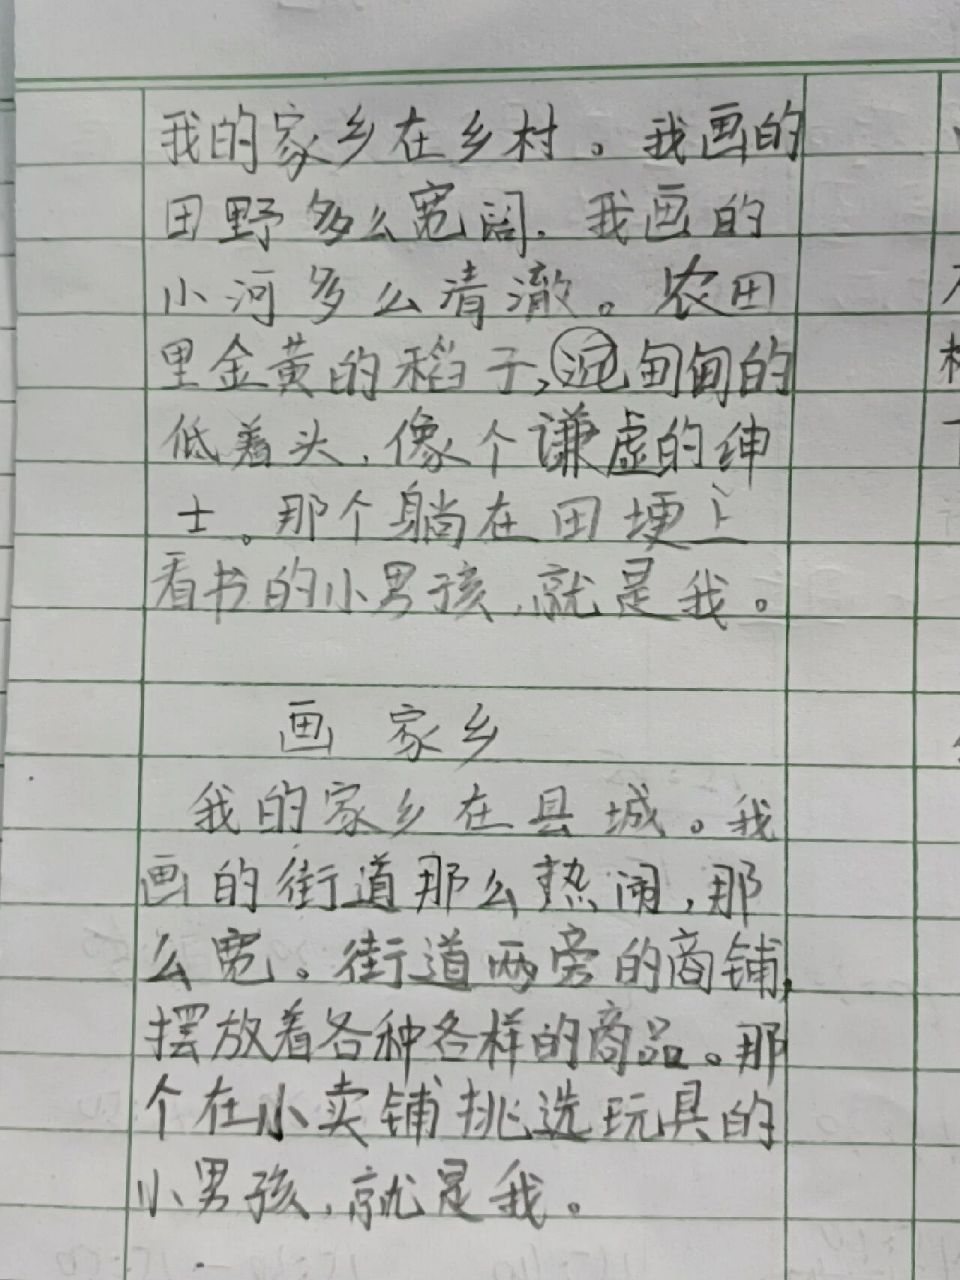 我的家乡在乡村。我画的
田野多么宽阔，我画的
小河多么清澈。农田
里金黄的稻子，沉甸甸的
低着头，像个谦虚的绅
士。那个躺在田埂上
看书的小男孩，就是我。
画家乡
我的家乡在县城。我
画的街道那么热闹，那
么宽。街道两旁的商铺，
摆放着各种各样的商品。那
个在小卖铺挑选玩具的
小男孩，就是我。